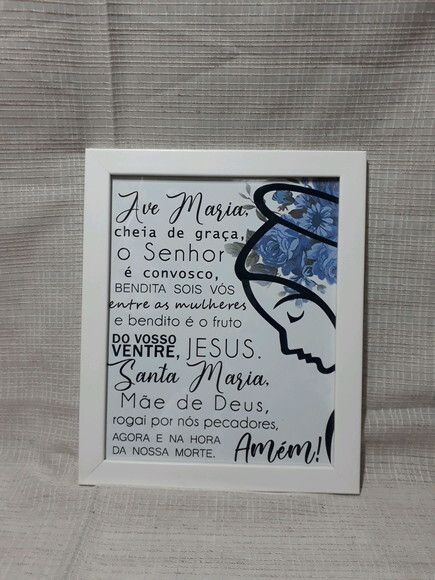 Ave Maria,
cheia de graça,
o Senhor
é convosco,
BENDITA SOIS VÓS
entre as mulheres
e bendito é o fruto
DO VOSSO
VENTRE, JESUS.
Santa Maria,
Mãe de Deus,
rogai por nós pecadores,
AGORA E NA HORA
DA NOSSA MORTE. Amém!